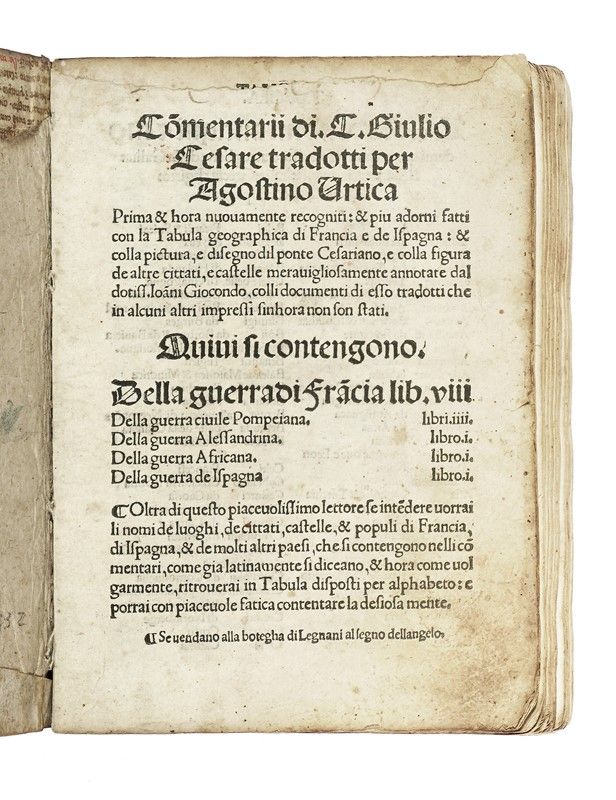 Cōmentarii di. C. Giulio
Cesare tradotti per
Agostino Urtica
Prima & hora nuouamente recogniti: & piu adorni fatti
con la Tabula geographica di Francia e de Ispagna: &
colla pictura, e disegno dil ponte Cesariano, e colla figura
de altre cittati, e castelle merauigliosamente annotate dal
dotiss. Ioāni Giocondo, colli documenti di esso tradotti che
in alcuni altri impressi sinhora non son stati.
Quiui si contengono.
Della guerra di Frācia lib. viii
Della guerra ciuile Pompeiana. libri. iiii.
Della guerra Alessandrina. libro. i.
Della guerra Africana. libro. i.
Della guerra de Ispagna libro. i.
¶ Oltra di questo piaceuolissimo lettore se intēdere uorrai
li nomi de luoghi, de cittati, castelle, & populi di Francia,
di Ispagna, & de molti altri paesi, che si contengono nelli cō
mentari, come gia latinamente si diceano, & hora come uol
garmente, ritrouerai in Tabula disposti per alphabeto: e
porrai con piaceuole fatica contentare la desiosa mente.
¶ Se uendano alla botegha di Legnani al segno dellangelo.